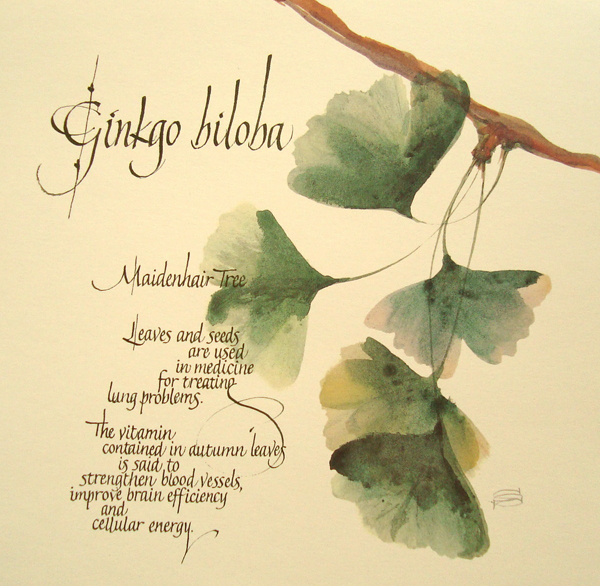 Ginkgo biloba
Maidenhair Tree
Leaves and seeds
are used
in medicine
for treating
lung problems.
The vitamin
contained in autumn leaves
is said to
strengthen blood vessels,
improve brain efficiency
and
cellular energy.